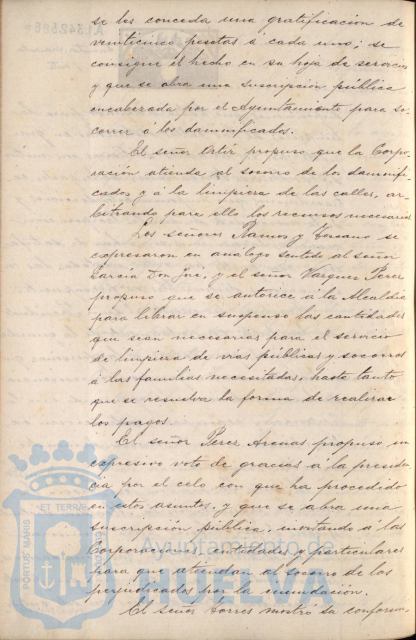 se les conceda una gratificación de
veinticinco pesetas á cada uno; se
consigne el hecho en su hoja de servicios
y que se abra una suscripción pública
encabezada por el Ayuntamiento para so-
correr á los damnificados.
El señor propuso que la Corpo-
ración atienda al socorro de los damnifi-
cados y á la limpieza de las calles, ar-
bitrando para ello los recursos necesarios
Los señores Ramos y Toscano se
expresaron en análogo sentido al señor
García Don José, y el señor Vazquez Perez
propuso que se autorice á la Alcaldía
para librar en suspenso las cantidades
que sean necesarias para el servicio
de limpieza de vías públicas y socorros
á las familias necesitadas, hasta tanto
que se resuelva la forma de realizar
los pagos.
El señor Perez Arenas propuso un
expresivo voto de gracias á la presiden-
cia por el celo con que ha procedido
en estos asuntos, y que se abra una
suscripción pública, invitando á las
Corporaciones, entidades y particulares
para que atiendan al socorro de los
perjudicados por la inundación.
El señor Torres mostró su conformi-
PORTUS MARIS ET TERRAE
Ayuntamiento de
HUELVA